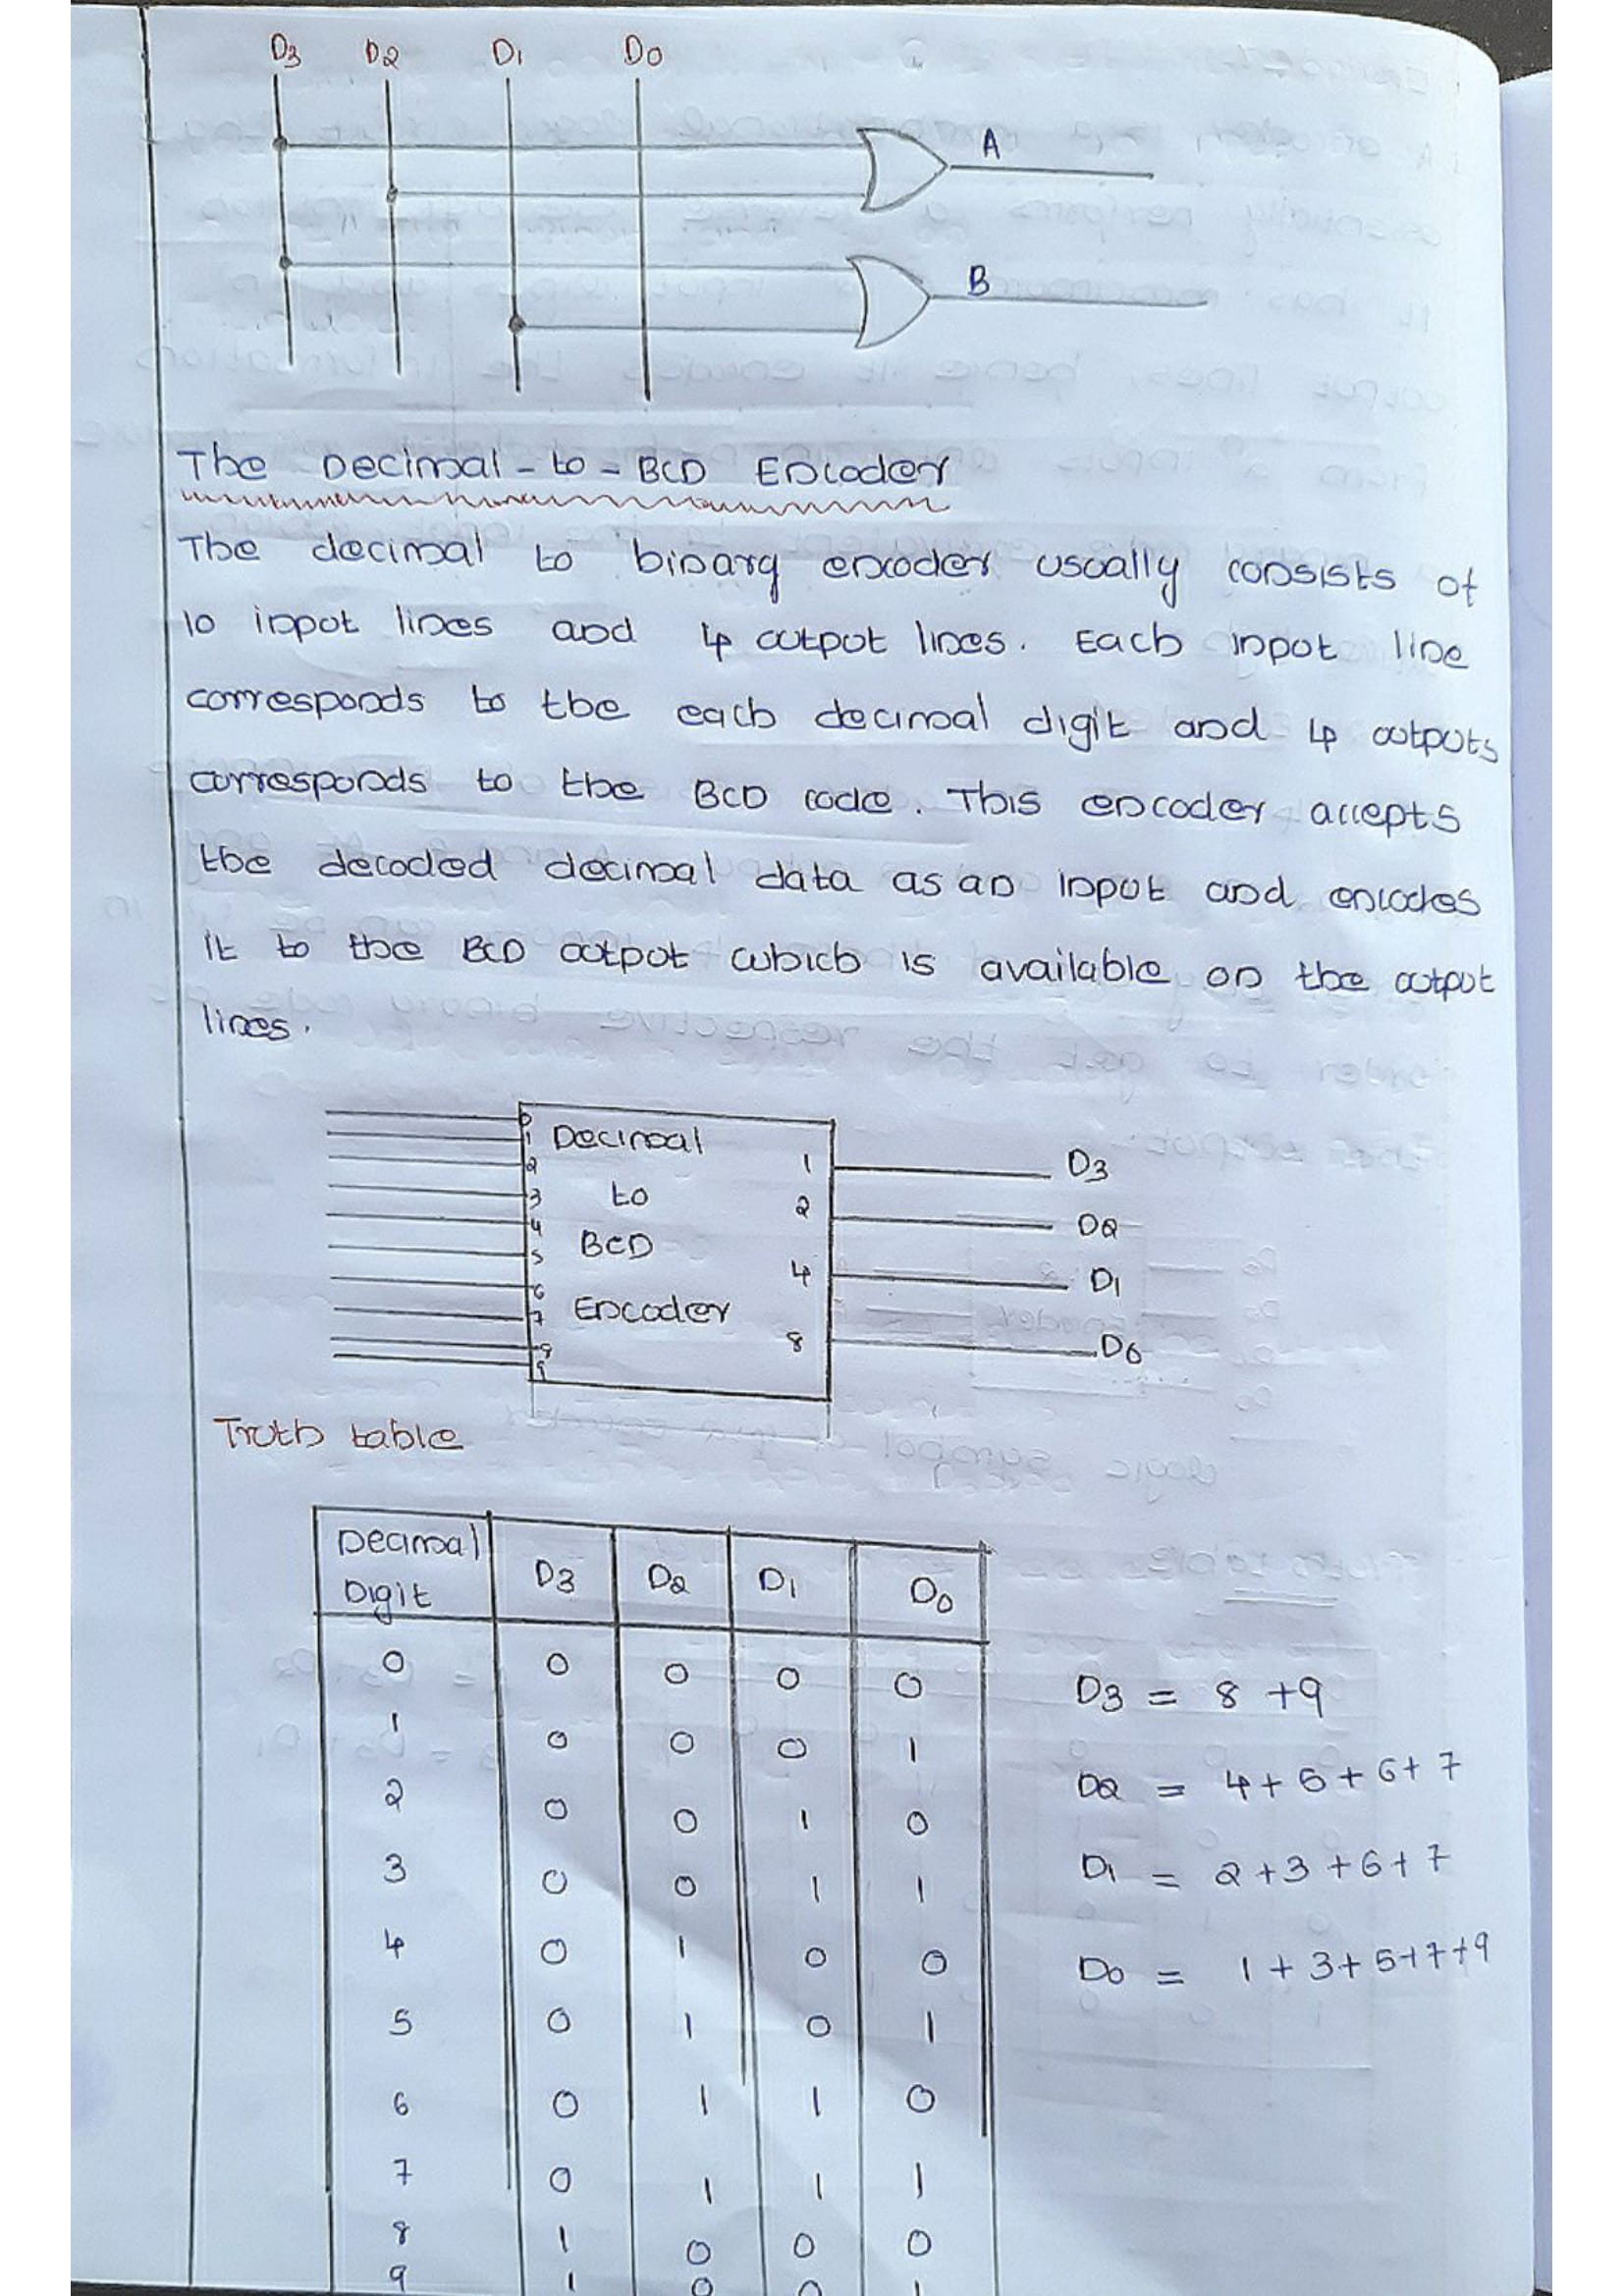 D3 D2 D1 D0
A
B
The Decimal-to-BCD Encoder
The decimal to binary encoder usually consists of
10 input lines and 4 output lines. Each input line
corresponds to the each decimal digit and 4 outputs
corresponds to the BCD code. This encoder accepts
the decoded decimal data as an input and encodes
it to the BCD output which is available on the output
lines.
0
1
2
3
4
5
6
7
8
9
Decimal
to
BCD
Encoder
1 D3
2 D2
4 D1
8 D0
Truth table
Decimal Digit D3 D2 D1 D0
0 0 0 0 0
1 0 0 0 1
2 0 0 1 0
3 0 0 1 1
4 0 1 0 0
5 0 1 0 1
6 0 1 1 0
7 0 1 1 1
8 1 0 0 0
9 1 0 0 1
D3 = 8 + 9
D2 = 4 + 5 + 6 + 7
D1 = 2 + 3 + 6 + 7
D0 = 1 + 3 + 5 + 7 + 9